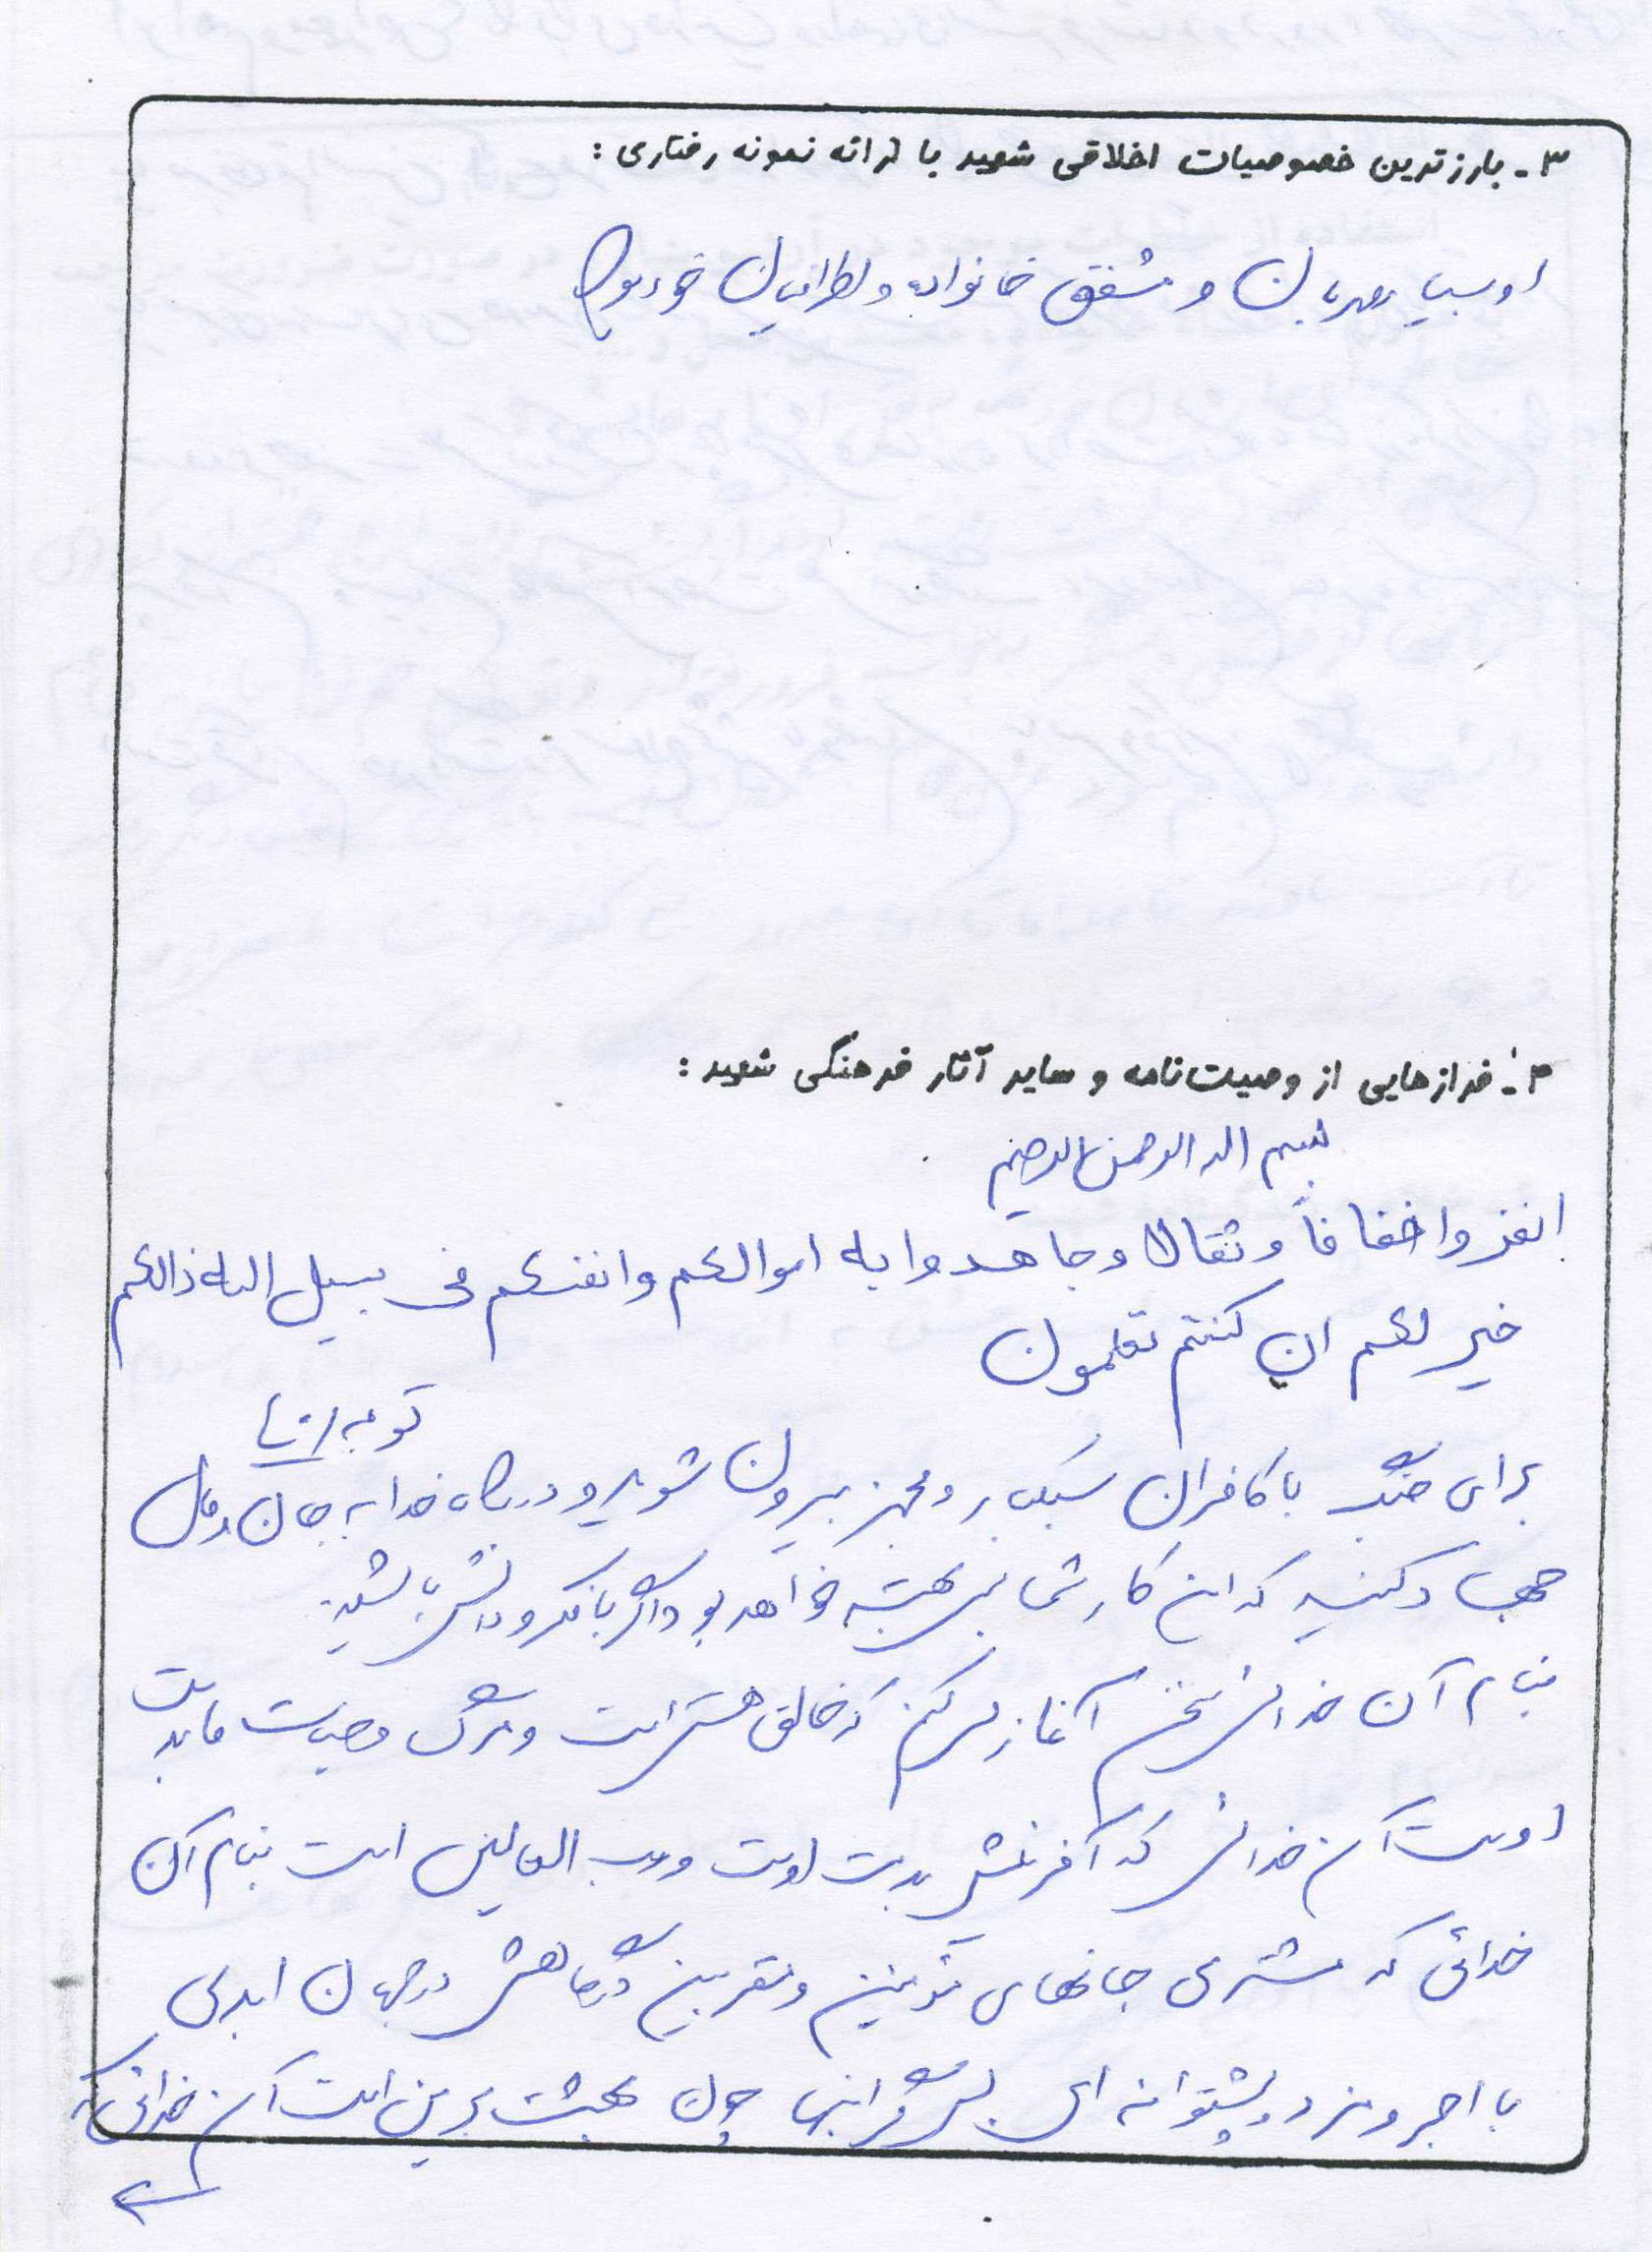 ۳ـ بارزترین خصوصیات اخلاقی شهید با ارائه نمونه رفتاری :
او بسیار مهربان و مشفق خانواده و اطرافیان خود بود
۴ـ فرازهایی از وصیت‌نامه و سایر آثار فرهنگی شهید :
بسم الله الرحمن الرحیم
انفروا خفافاً و ثقالا و جاهدوا به اموالکم وانفسکم فی سبیل الله ذالکم
خیر لکم ان کنتم تعلمون
توبه
برای جنگ با کافران سبکبار و مجهز بیرون شوید و در راه خدا به جان و مال
جهاد کنید که این کار شما بسی بهتر خواهد بود اگر با فکر و دانش باشید.
بنام آن خدائی سخنم آغاز میکنم که خالق هستی است و مرگ و حیات ما بدست
اوست آن خدائی که آفرینش بدست اوست و رب العالمین است بنام آن
خدائی که مشتری جانهای مؤمنین و مقربین درگاهش در جهان ابدی
با اجر و مزد و پشتوانه ای بس گرانبها چون بهشت برین است آن خدائی که